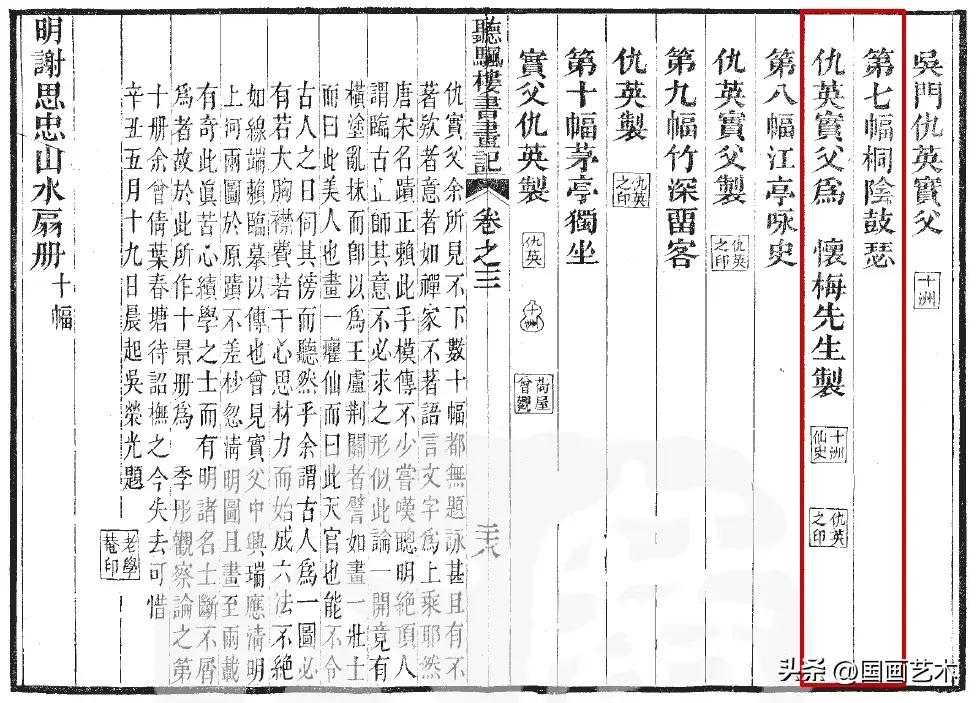 吳門仇英實父 十洲
第七幅桐陰鼓瑟
仇英實父爲 懷梅先生製 十洲仙史 仇英之印
第八幅江亭咏史
仇英實父製 仇英之印
第九幅竹深畱客
仇英製 仇英之印
第十幅茅亭獨坐
實父仇英製 仇英 十洲 荷屋曾觀
聽颿樓書畫記 卷之三 三十八
仇實父余所見不下數十幅都無題詠甚且有不
著欵者意者如禪家不著語言文字爲上乘耶然
唐宋名蹟正賴此手模傳不少嘗嘆聰明絕頂人
謂臨古止師其意不必求之形似此論一開竟有
橫塗亂抹而卽以爲王盧荆關者譬如畫一壯士
而曰此美人也畫一癯仙而曰此天官也能不令
古人之日伺其傍而聽然乎余謂古人爲一圖必
有若大胸襟費若干心思材力而始成六法不絕
如線端賴臨摹以傳也曾見實父中興瑞應淸明
上河兩圖於原蹟不差杪忽淸明圖且畫至兩載
有奇此眞苦心績學之士而有明諸名士斷不屑
爲者故於此所作十景册爲 季彤觀察論之第
十册余曾倩葉春塘待詔橅之今失去可惜
辛丑五月十九日晨起吳榮光題 老學菴印
明謝思忠山水扇册 十幅
头条 @国画艺术